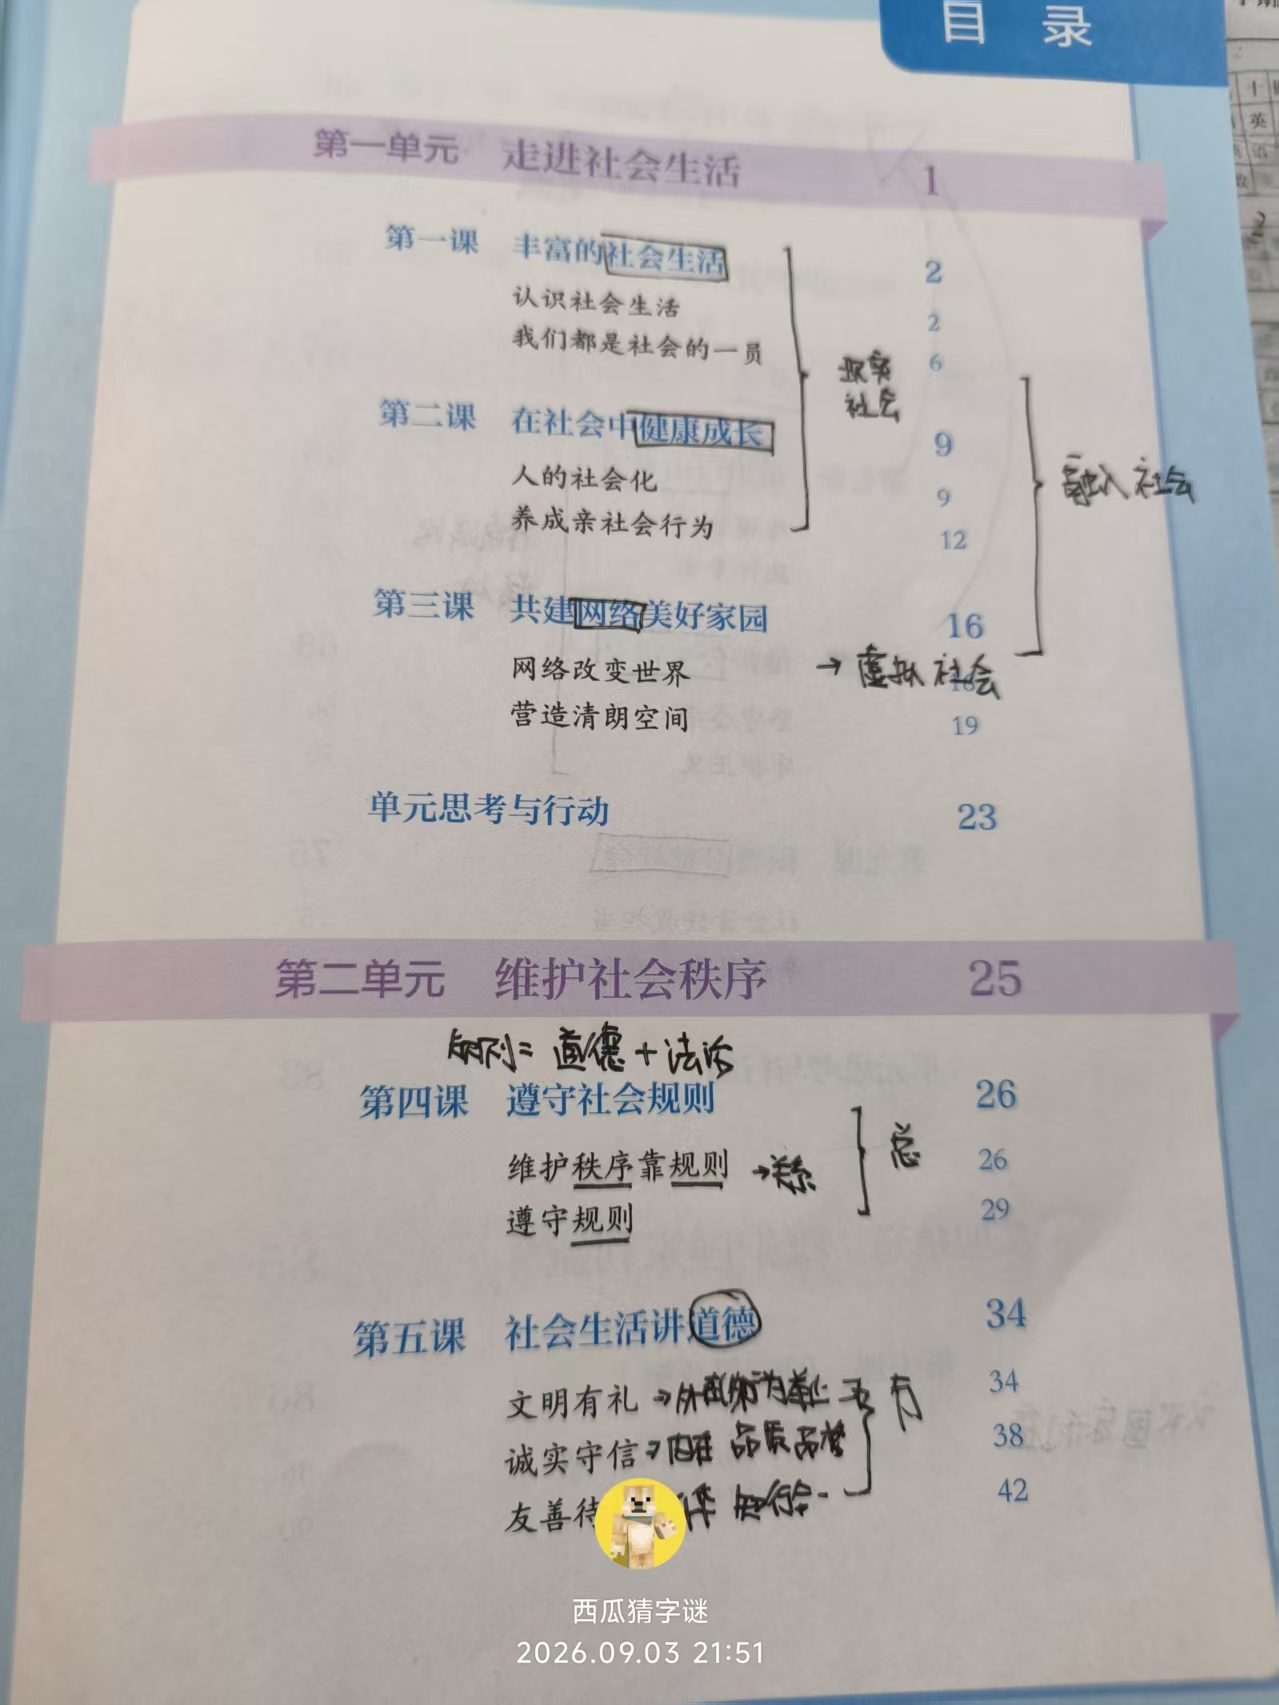 目 录
第一单元 走进社会生活 1
第一课 丰富的社会生活 2
认识社会生活 2
我们都是社会的一员 6
现实
社会
第二课 在社会中健康成长 9
人的社会化 9
养成亲社会行为 12
融入社会
第三课 共建网络美好家园 16
网络改变世界 → 虚拟社会 16
营造清朗空间 19
单元思考与行动 23
第二单元 维护社会秩序 25
规则= 道德 + 法治
第四课 遵守社会规则 26
维护秩序靠规则 →关系 26
总
遵守规则 29
第五课 社会生活讲道德 34
文明有礼 → 34
诚实守信 → 品质 38
友善待 知行合一 42
西瓜猜字谜
2026.09.03 21:51